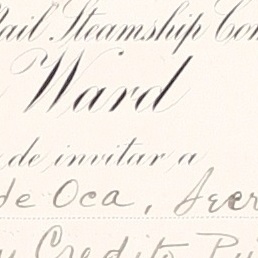 Mail Steamship Com
Ward
de invitar a
de Oca, Secr
y Credito Pú